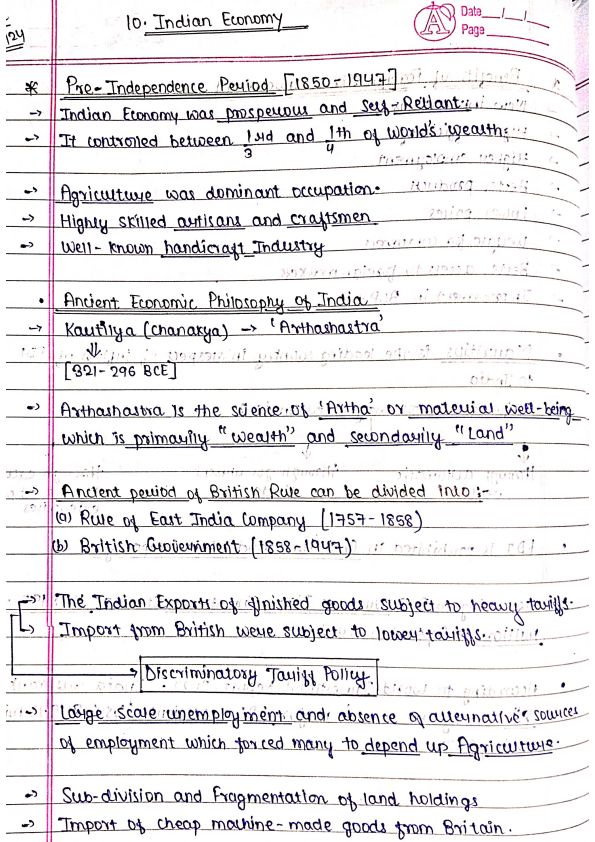 /24
10. Indian Economy
Date
Page
* Pre-Independence Period [1850-1947]
→ Indian Economy was prosperous and Self-Reliant.
→ It controlled between 1/3rd and 1/4th of World's wealth.
→ Agriculture was dominant occupation.
→ Highly skilled artisans and craftsmen
→ Well-known handicraft Industry
• Ancient Economic Philosophy of India
→ Kautilya (Chanakya) → 'Arthashastra'
⇓
[321-296 BCE]
→ Arthashastra is the science of 'Artha' or material well-being
which is primarily "wealth" and secondarily "Land".
→ Ancient period of British Rule can be divided into :-
(a) Rule of East India Company [1757-1858)
(b) British Government (1858-1947)
→ The Indian Exports of finished goods subject to heavy tariffs.
→ Import from British were subject to lower tariffs.
→ Discriminatory Tariff Policy.
→ Large scale unemployment and absence of alternative sources
of employment which forced many to depend up Agriculture.
→ Sub-division and fragmentation of land holdings
→ Import of cheap machine-made goods from Britain.